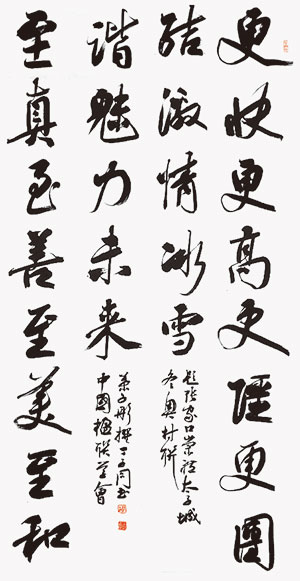 更快更高更强更團
结激情冰雪
题张家口崇礼太子城
冬奥村联
至真至善至美至和
谐魅力未来
葉子彤撰
中國楹联学會